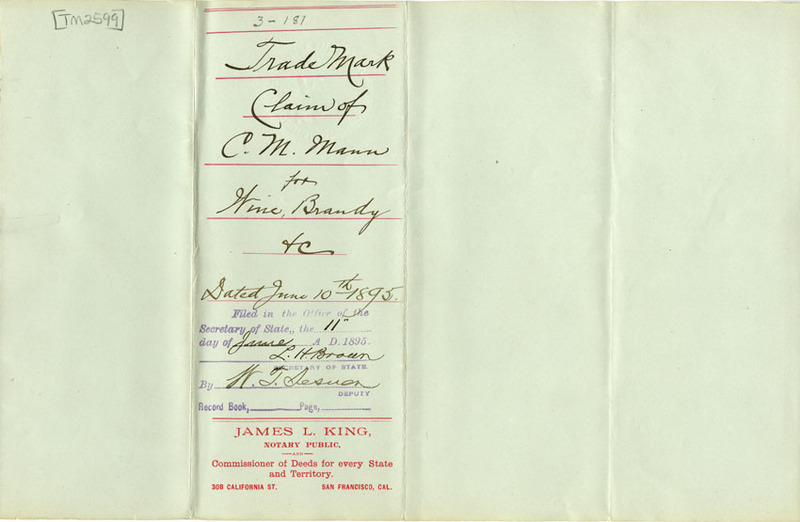 [TM2599]
3-181
Trade Mark
Claim of
C. M. Mann
for
Wine, Brandy
&c
Dated June 10th 1895.
Filed in the Office of the
Secretary of State,, the 11"
day of June A D. 1895.
L. H. Brown
SECRETARY OF STATE.
By W. T.
DEPUTY
Record Book, Page,
JAMES L. KING,
NOTARY PUBLIC,
AND
Commissioner of Deeds for every State
and Territory.
308 CALIFORNIA ST. SAN FRANCISCO, CAL.